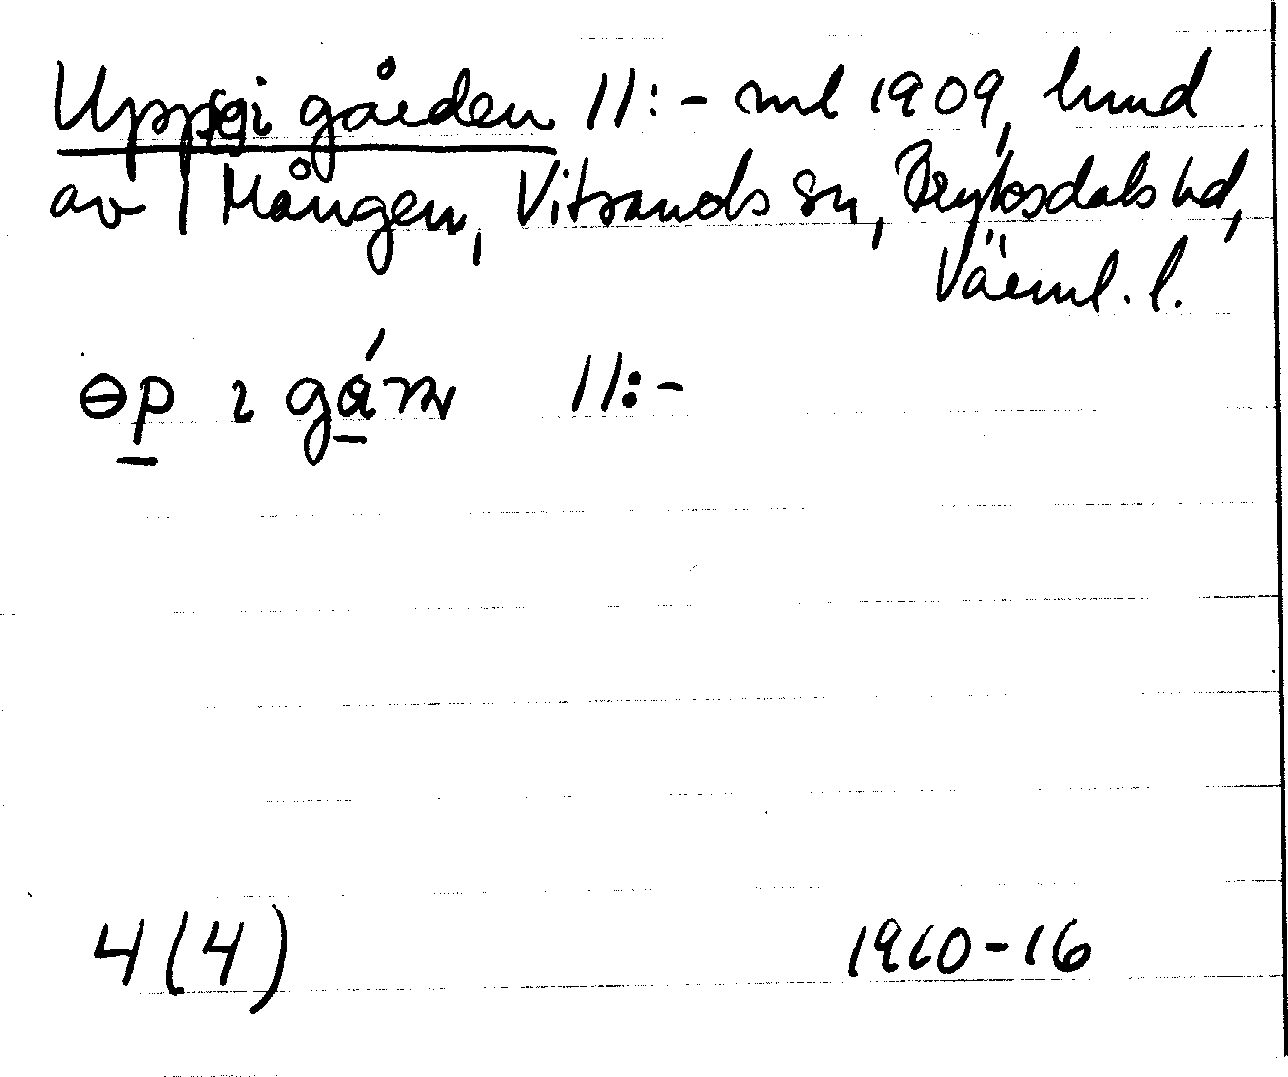 Uppi gården 11:- ml 1909, hmd
av Mången, Vitsands sn, Fryksdals hd,
Värml. l.
ɵp ɩ gárn 11:-
4(4) 1910-16